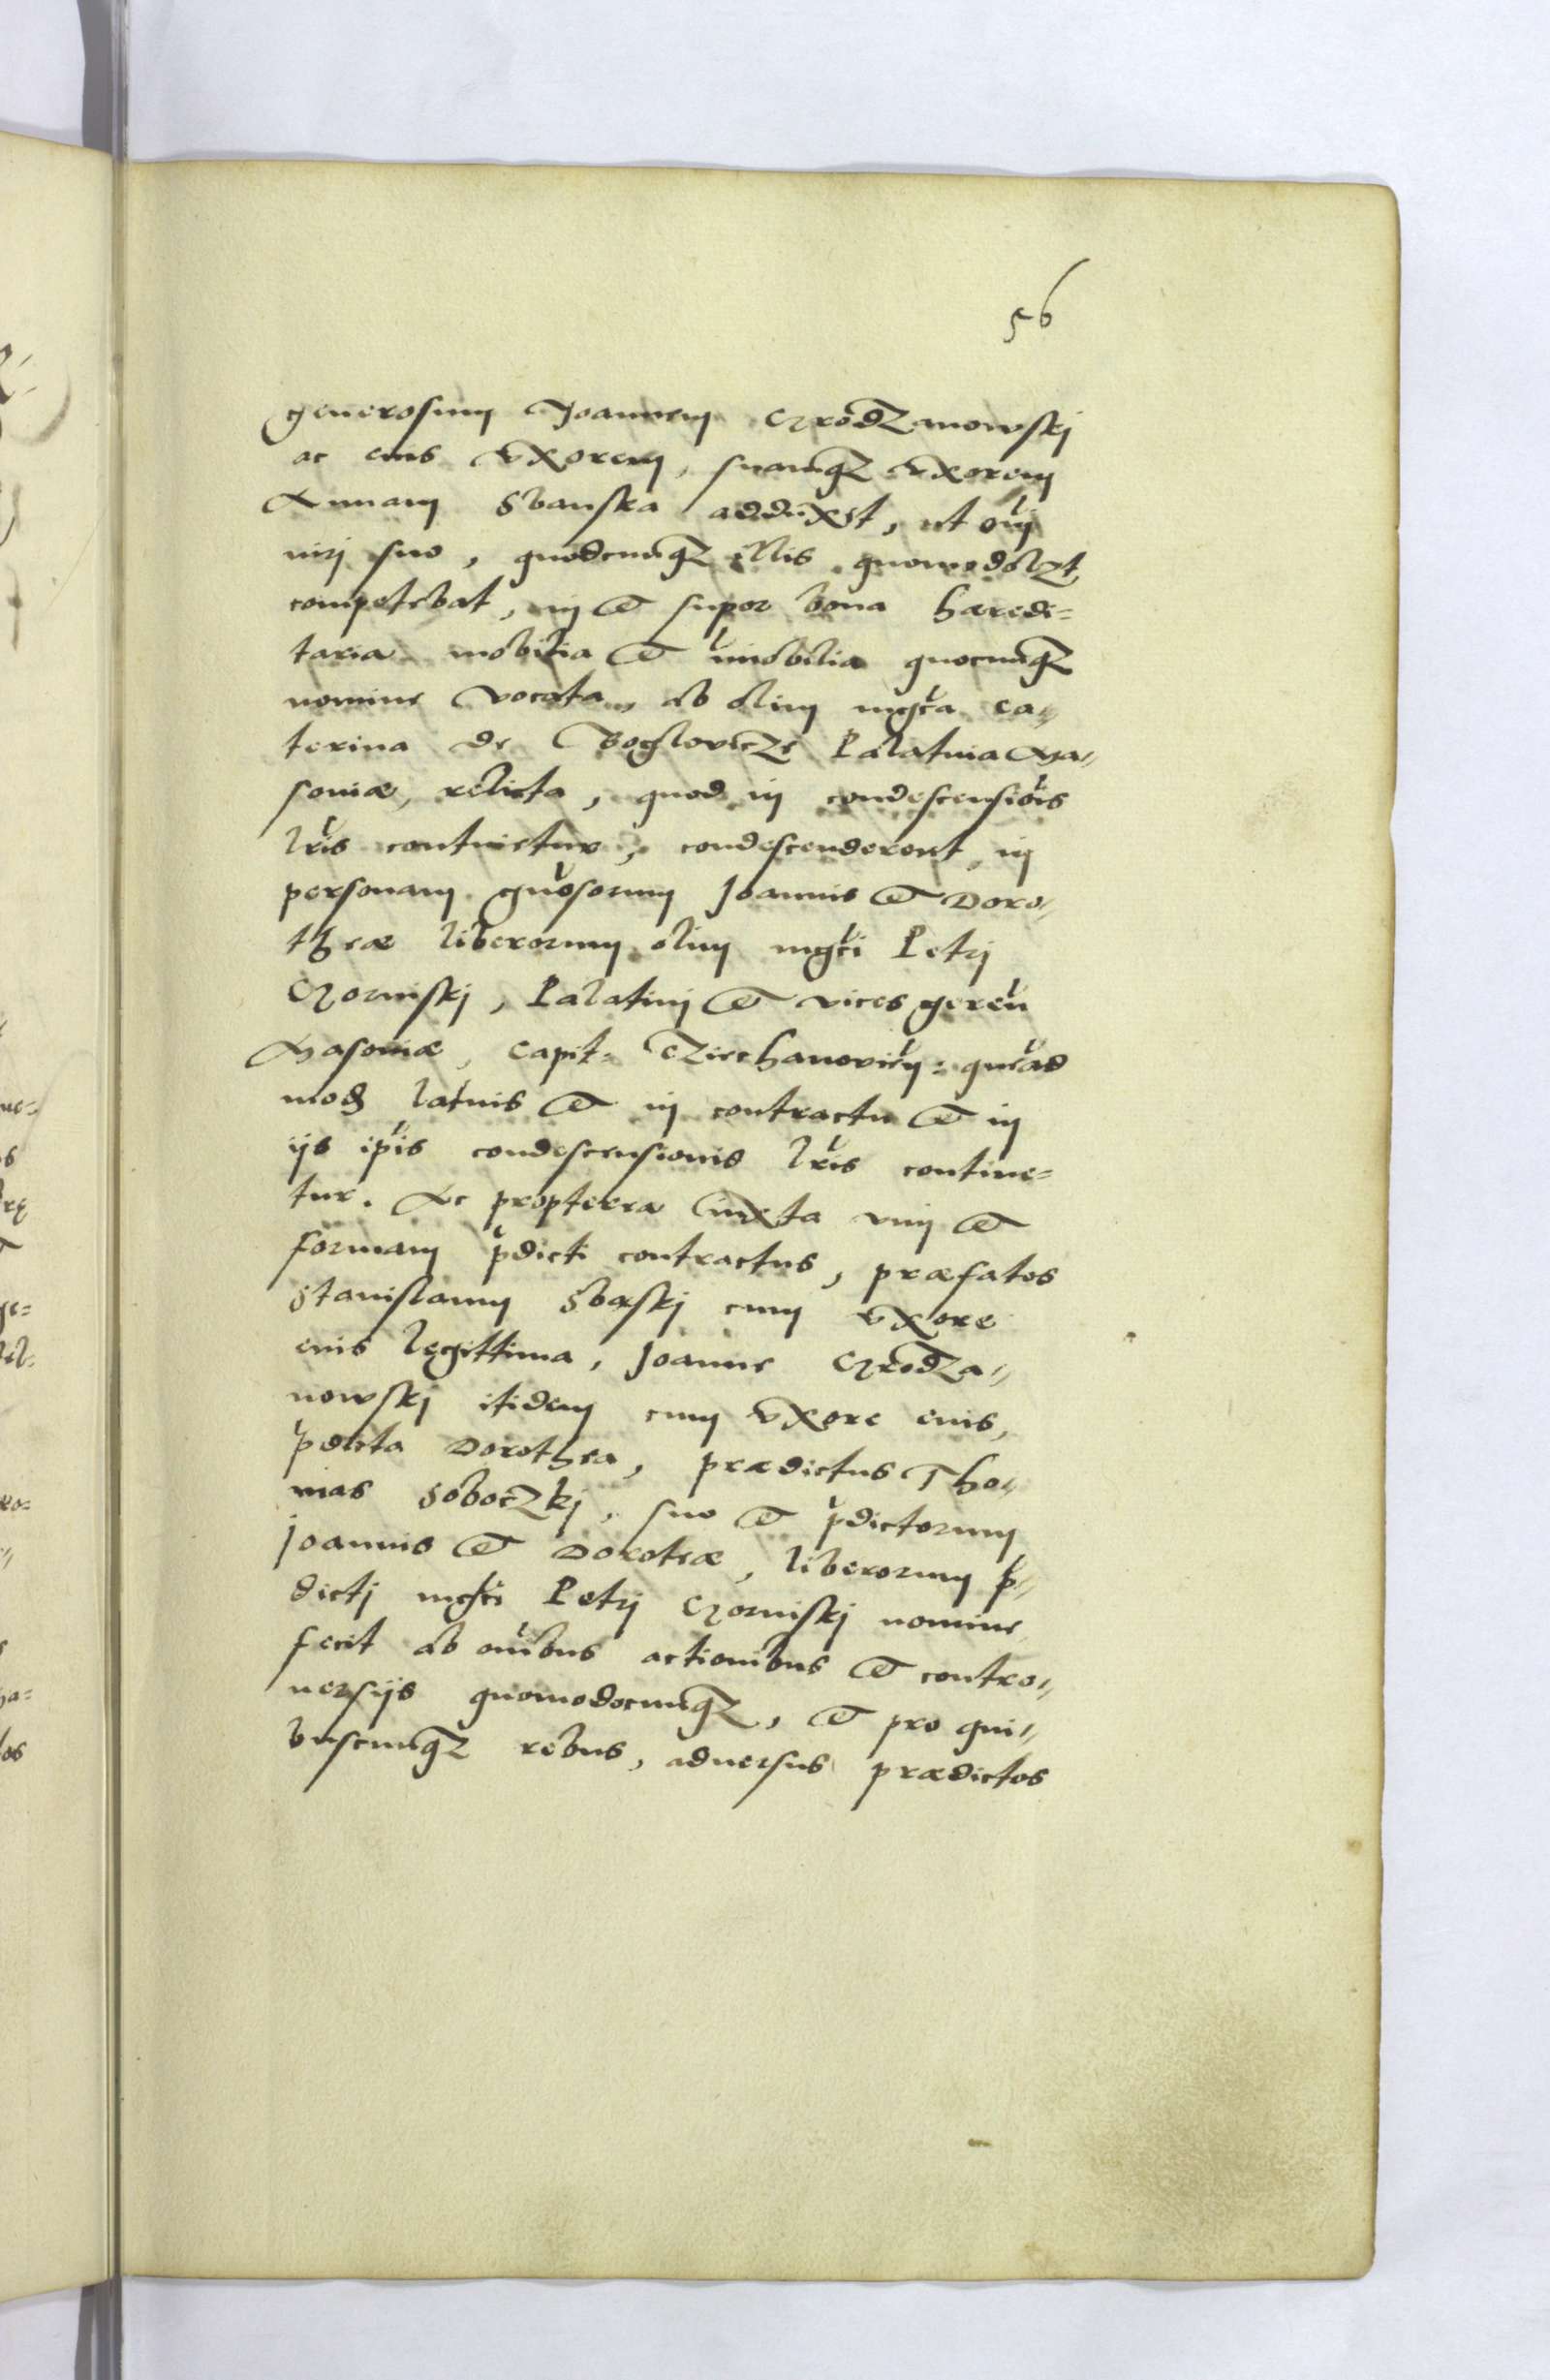 56
generosum Joannem Grodzanowskj
ac eius vxorem, suamqz vxorem
Annam Sbanska adduxit, ut oni
iurj suo, quodcunqz illis quomodolzt
competebat, in et super bona haeredi=
taria mobilia et imobilia quocunqz
nomine vocata, ab olim mgca Ca„
terina de Boglovicze Palatina Ma„
soviae, relicta, quod in condescensiois
lris continetur, condescenderent in
personam gnosorum Joannis et Doro„
theae liberorum olim mgci Petrj
Gorinskj, Palatini et vices geren
Masoviae, Capit: Cziechanovien: quead
mod latius et in contractu et in
ijs ipis condescensionis lris contine=
tur. Ac propterea iuxta vim et
formam pdicti contractus, praefatos
Stanislaum Sbaskj cum vxore
eius legittima, Joanne Grodza„
nowskj itidem cum vxore eius,
pdicta Dorothea, praedictus Tho„
mas Soboczkj, suo et pdictorum
Joannis et Doroteae, liberorum p„
dictj mgci Petrj Gorinskj nomine
fecit ab onibus actionibus et contro„
versijs quomodocunqz, et pro qui„
buscunqz rebus, adversus praedictos